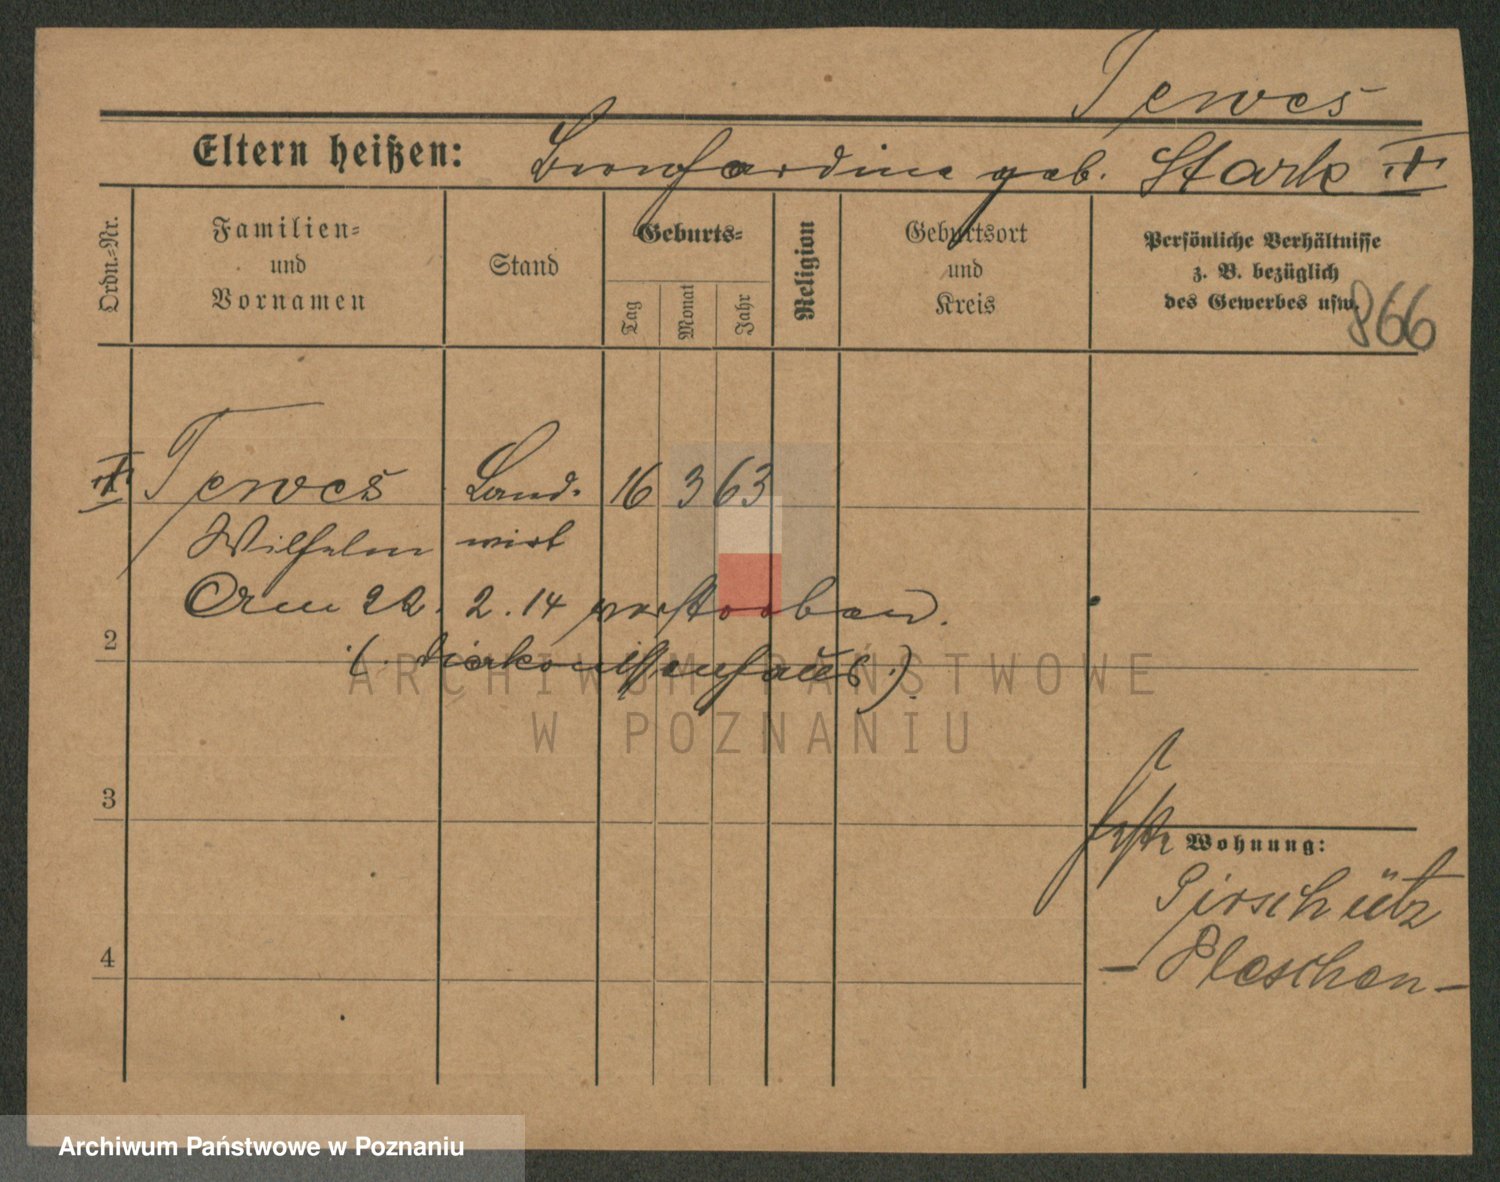 Tewes
Eltern heißen: Bernhardine geb. Stark
Ordn.-Nr.
Familien-
und
Vornamen
Stand
Geburts-
Tag
Monat
Jahr
Religion
Geburtsort
und
Kreis
Persönliche Verhältnisse
z. B. bezüglich
des Gewerbes usw.
866
Tewes Land- 16 3 63
Wilhelm wirt
Am 22. 2. 14 verstorben.
(Diakonissenhaus)
2
ARCHIWUM PAŃSTWOWE
W POZNANIU
3
Wohnung:
Pirschütz
4
- Pleschen -
Archiwum Państwowe w Poznaniu